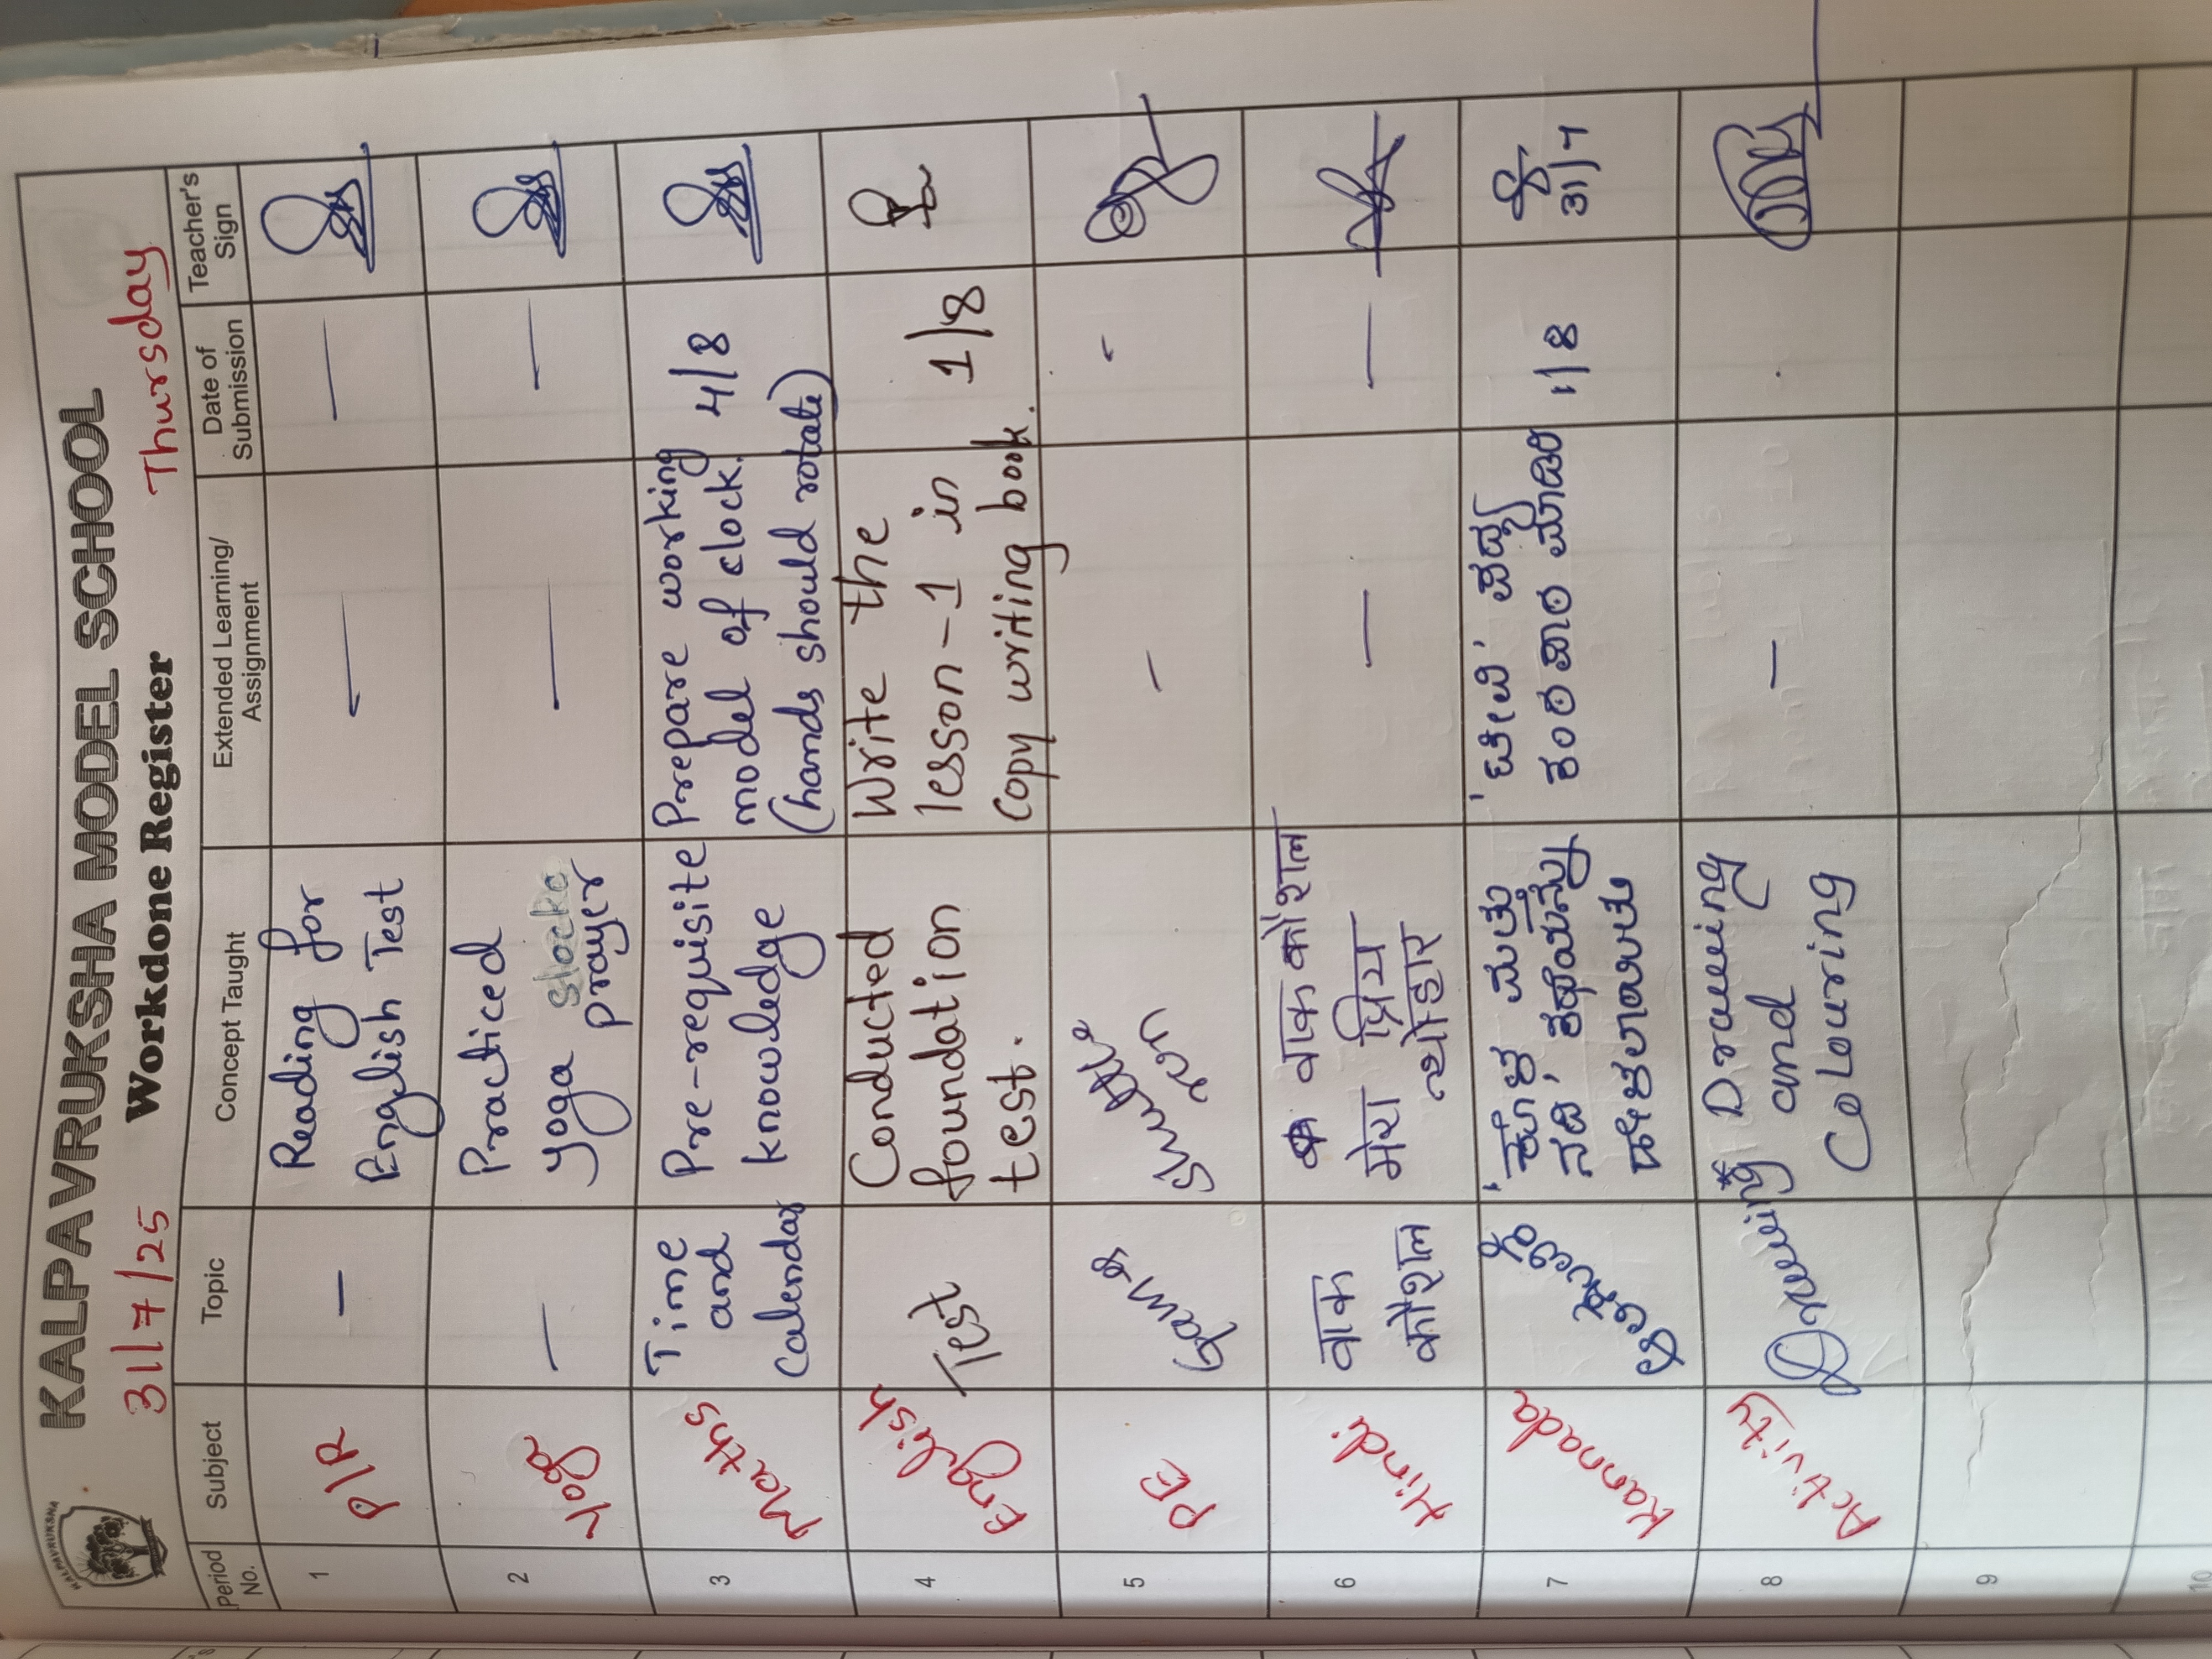 KALPAVRUKSHA
KALPAVRUKSHA MODEL SCHOOL
31/7/25 Workdone Register Thursday
Period No. Subject Topic Concept Taught Extended Learning/ Assignment Date of Submission Teacher's Sign
1 P/R — Reading for — —
English Test
2 Yoga — Practiced — —
yoga slocka
prayer
3 Maths Time Pre-requisite Prepare working
and knowledge model of clock. 4/8
Calendar (hands should rotate)
4 English Test Conducted Write the
foundation lesson-1 in 1/8
test. copy writing book.
5 PE Game - -
run
6 Hindi वाक वाक कौशल — —
कौशल मेरा प्रिय
त्योहार
7 Kannada ಮತ್ತು ಪದ್ಯ
ನದಿ, ಕಂಠಪಾಠ ಮಾಡಿ 1/8 31/7
8 Activity Drawing * Drawing —
and
Colouring
9
10